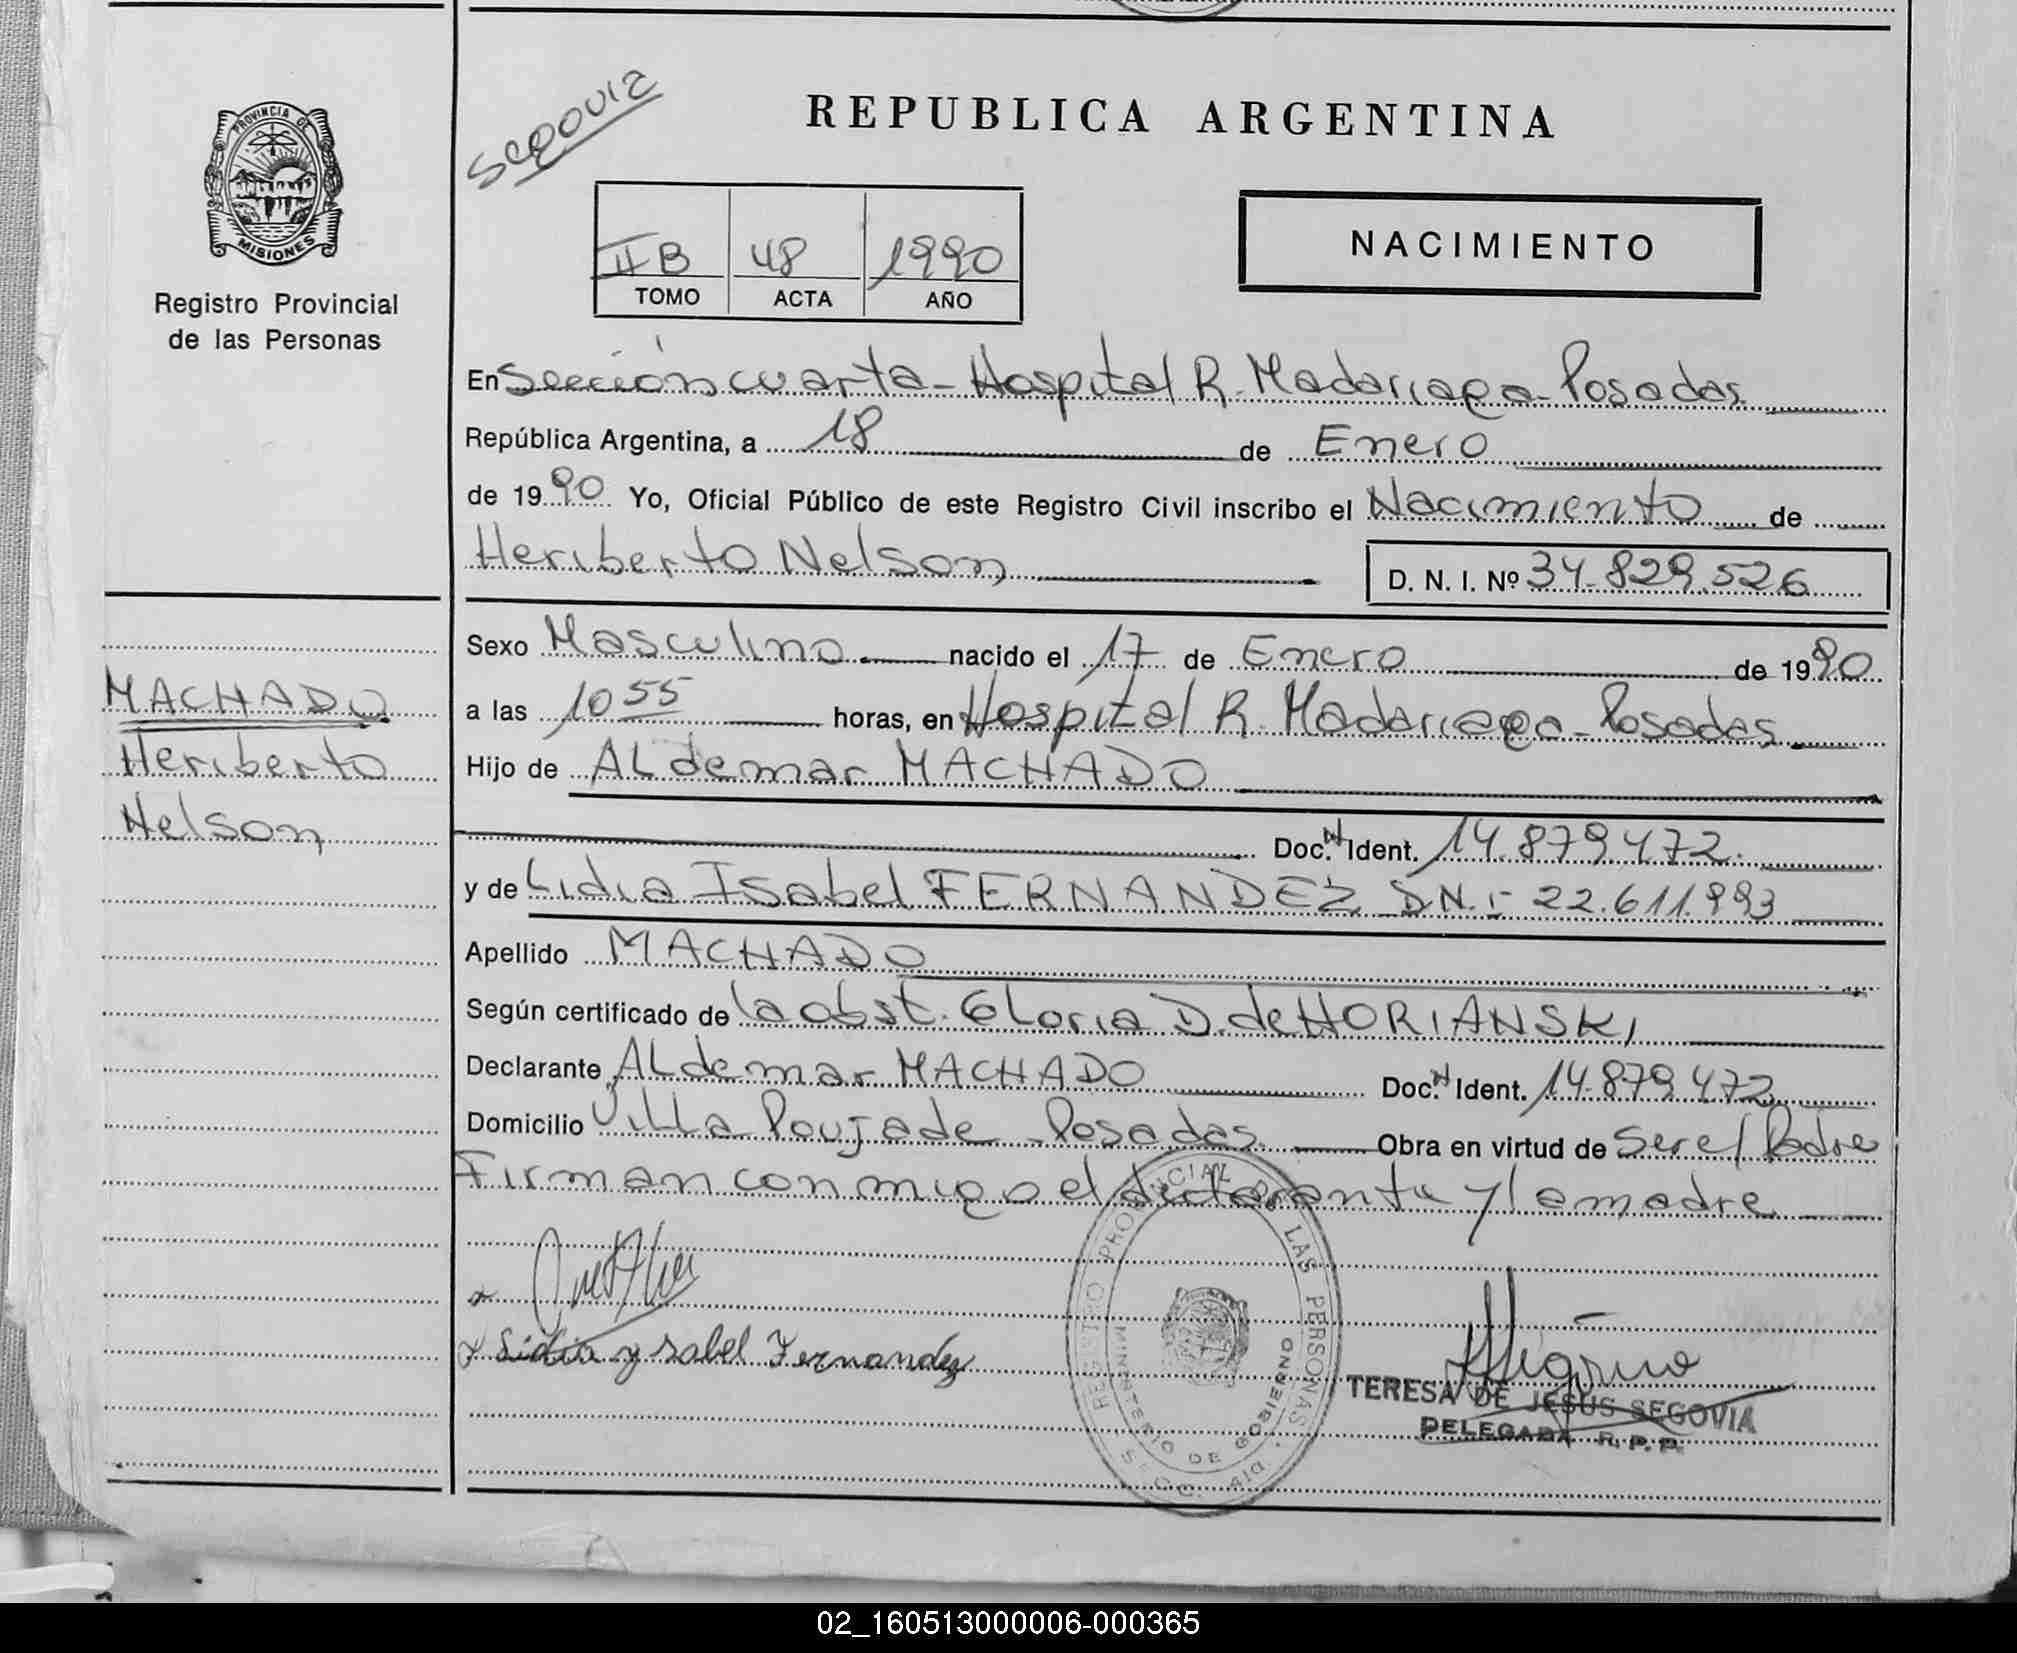 REPUBLICA ARGENTINA
Segovia
PROVINCIA DE
MISIONES
Registro Provincial
de las Personas
II B 48 1990
TOMO ACTA AÑO
NACIMIENTO
En Sección cuarta - Hospital R. Madariaga - Posadas
República Argentina, a 18 de Enero
de 1990 Yo, Oficial Público de este Registro Civil inscribo el Nacimiento de
Heriberto Nelson D. N. I. Nº 34.829.526
Sexo Masculino nacido el 17 de Enero de 1990
MACHADO
Heriberto
Nelson
a las 10 55 horas, en Hospital R. Madariaga - Posadas
Hijo de ALdemar MACHADO
Doc. N Ident. 14.879.472.
y de Lidia Isabel FERNANDEZ DN.I- 22.611.993
Apellido MACHADO
Según certificado de la obst. GLoria D. de HORIANSKI
Declarante ALdemar MACHADO Doc. N Ident. 14.879.472
Domicilio ViLLa Poujade - Posadas. Obra en virtud de Ser el Padre
Firman conmigo el declarante y la madre
x Lidia Ysabel Fernandez
REGISTRO PROVINCIAL DE LAS PERSONAS
MINISTERIO DE GOBIERNO
SECC. 4ta.
TERESA DE JESUS SEGOVIA
DELEGADA R. P. P.
02_160513000006-000365